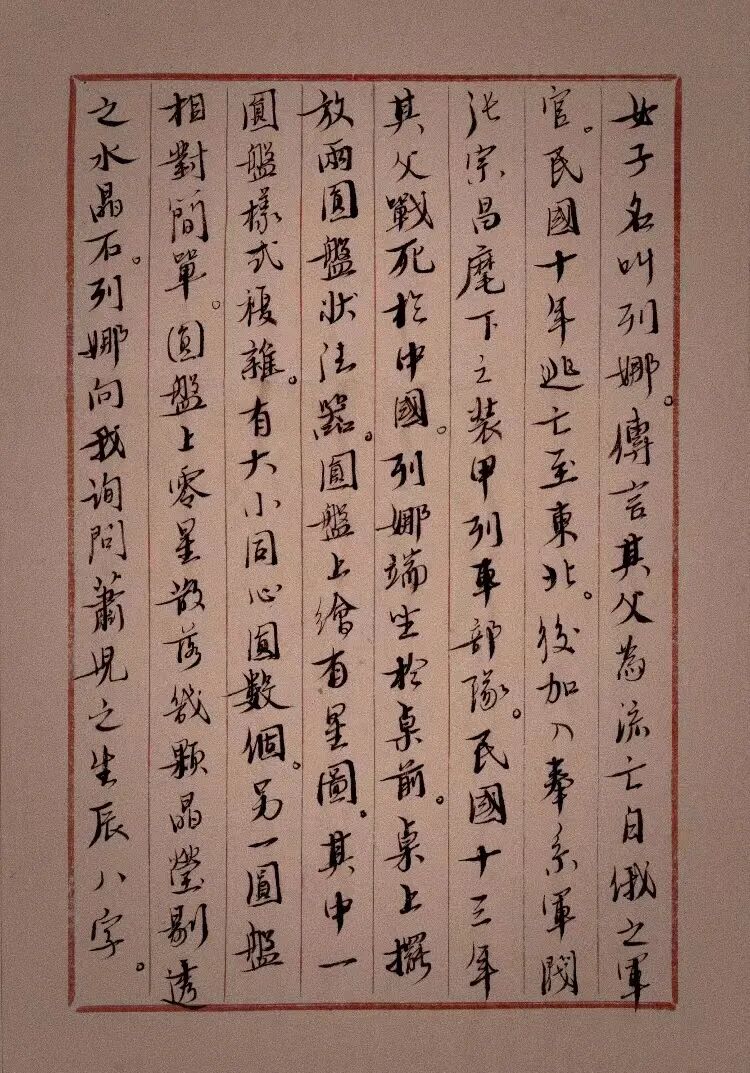 女子名叫列娜。傳言其父為流亡自俄之軍
官。民國十年逃亡至東北。後加入奉系軍閥
张宗昌麾下之装甲列車部隊。民國十三年
其父戰死於中國。列娜端坐於桌前。桌上擺
放兩圓盤狀法器。圓盤上繪有星圖。其中一
圓盤樣式複雜。有大小同心圓數個。另一圓盤
相對簡單。圓盤上零星散落幾顆晶瑩剔透
之水晶石。列娜向我詢問蕭兒之生辰八字。